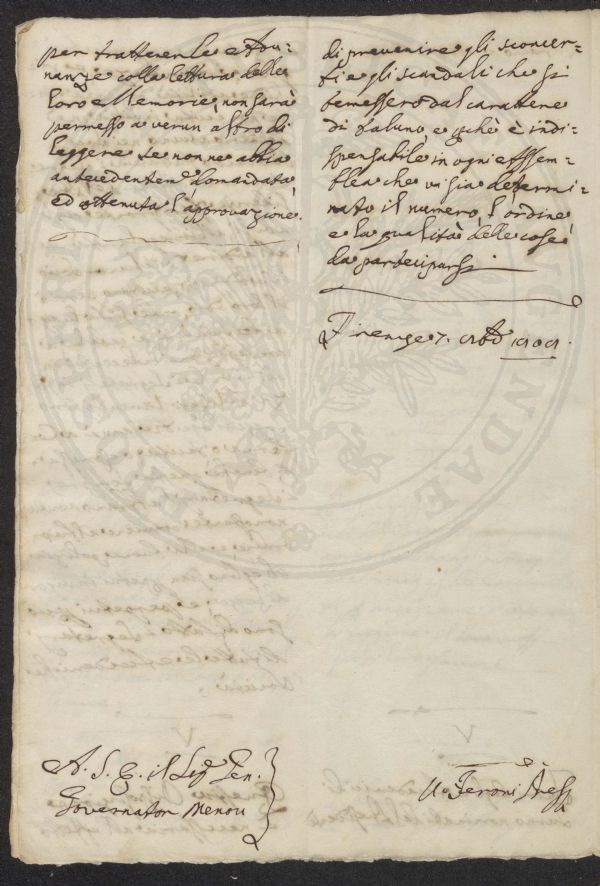 per trattener le Adu-
nanze colla lettura delle
loro Memorie, non sarà
permesso a verun altro di
leggere se non ne abbia
antecedentem.e domandata
ed ottenuta l'approvazione.
di prevenire gli sconcer-
ti e gli scandali che si
temessero dal carattere
di taluno, e p.chè è indi-
spensabile in ogni Assem-
blea che vi sia determi-
nato il numero, l'ordine
e la qualità delle cose
da parteciparsi
Firenze 7.
A. S. E. il Sig.r Gen.
Governator Menou
U.o Feroni
PROSPERITATI